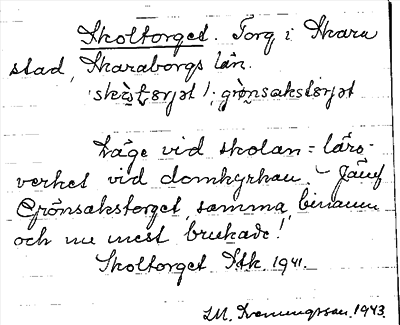 Skoltorget. Torg i Skara
stad, Skaraborgs län.
skòltɷrjət /; grö̀nsakstɷrjət
Läge vid skolan = läro-
verket vid domkyrkan. - Jämf
Grönsakstorget, samma, binamn
och nu mest brukade!
Skoltorget Stk. 1941.
1943.